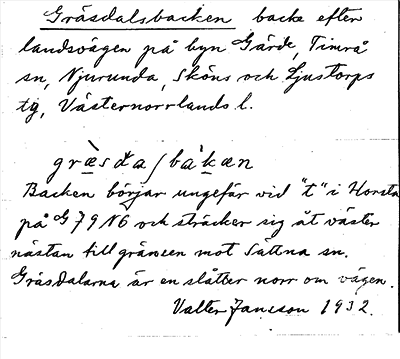 Gräsdalsbacken backe efter
landsvägen på byn Gärde, Timrå
sn, Njurunda, Sköns och Ljustorps
tg, Västernorrlands l.
græ̀sda/bàkæn
Backen börjar ungefär vid "t" i Horsta
på G 79 N6 och sträcker sig åt väster
nästan till gränsen mot Sättna sn.
Gräsdalarna är en slåtter norr om vägen.
Valter Jansson 1932.